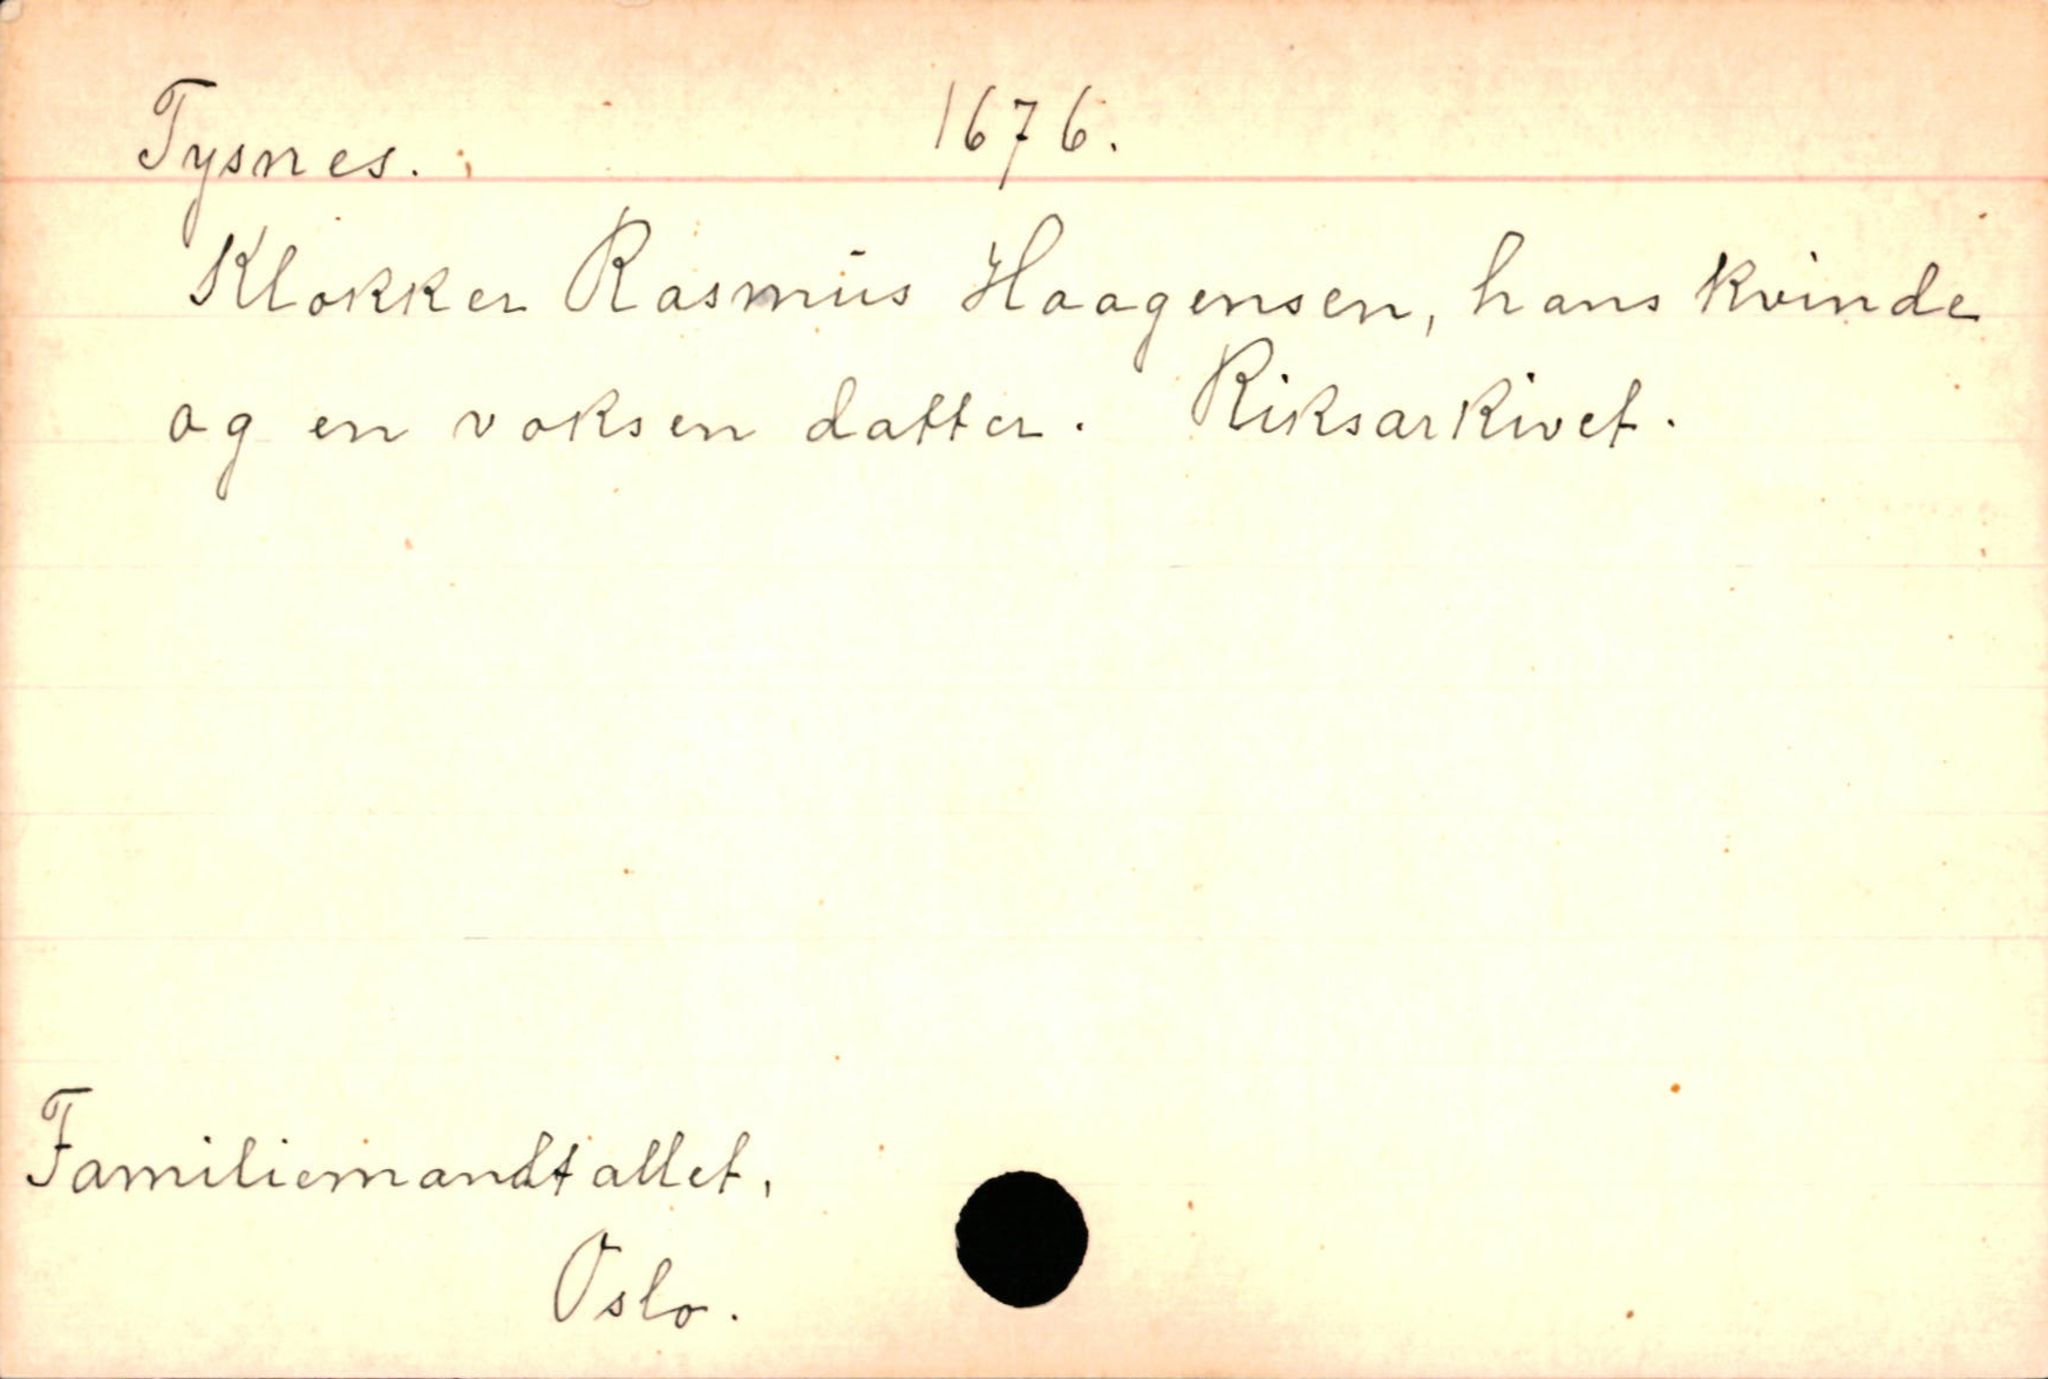 Tysnes. 1676.
Klokker Rasmus Haagensen, hans kvinde
og en voksen datter. Riksarkivet.
Familiemandtallet,
Oslo.